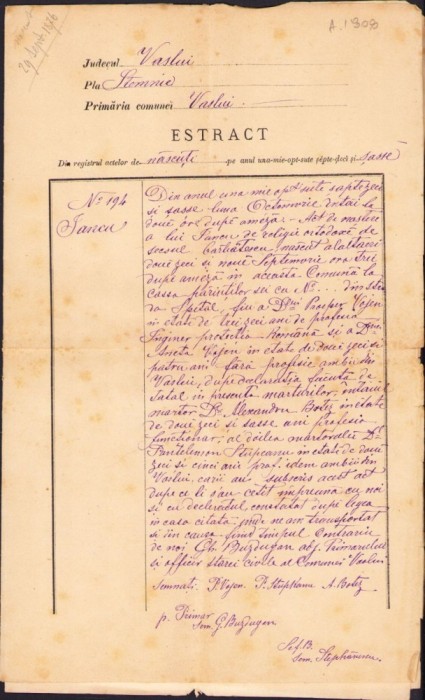 29 Sept 1876
A. 1908
Judeçul Vaslui
Pla Stemnic
Primăria comunei Vaslui
ESTRACT
Din registrul actelor de născuți pe anul una-mie-opt-sute șépte-ḑeci și șasse
No 194
Iancu
Din anul una mie opt sute saptezeci
si sasse luna Octomvrie intai la
doue ore dupe ameza - Act de nastere
a lui Iancu de religie ortodoxă de
secsul bărbătescu, născut alaltaeri
doue zeci si nouă Septemvrie ora trei
dupe ameză in aceasta Comună la
cassa parintilor sei cu No... din stra
da Spital, fiu a Dlui Prosper Vojen
in etate de ani de profesia
Inginer protectia Română si a Dnei
Aneta Vojen in etate de doue zeci si
patru ani fără profesie ambii din
Vaslui, dupe declaratia facuta de
tatal in presenta marturilor, întaiul
martor D. Alexandru Botez in etate
de doue zeci si sasse ani profesia
functionar, al doilea martor ales D.
Pantelemon Stupcanu in etate de doue
zeci si cinci ani prof. idem ambii din
Vaslui, carii au subscris acest act
dupe ce li s'au cetit impreuna cu noi
si cu declarantul constatat dupe legea
in casa citata, unde ne am transportat
si in causa fiind timpul contrariu
de noi G. Buzdugan adj. Primarului
si officer starei civile al Comunei Vaslui
Semnati: P. Vojen P. Stupcanu A. Botez
p. Primar
Sem. G. Buzdugan
Sef. B.
Sem. Stephănescu